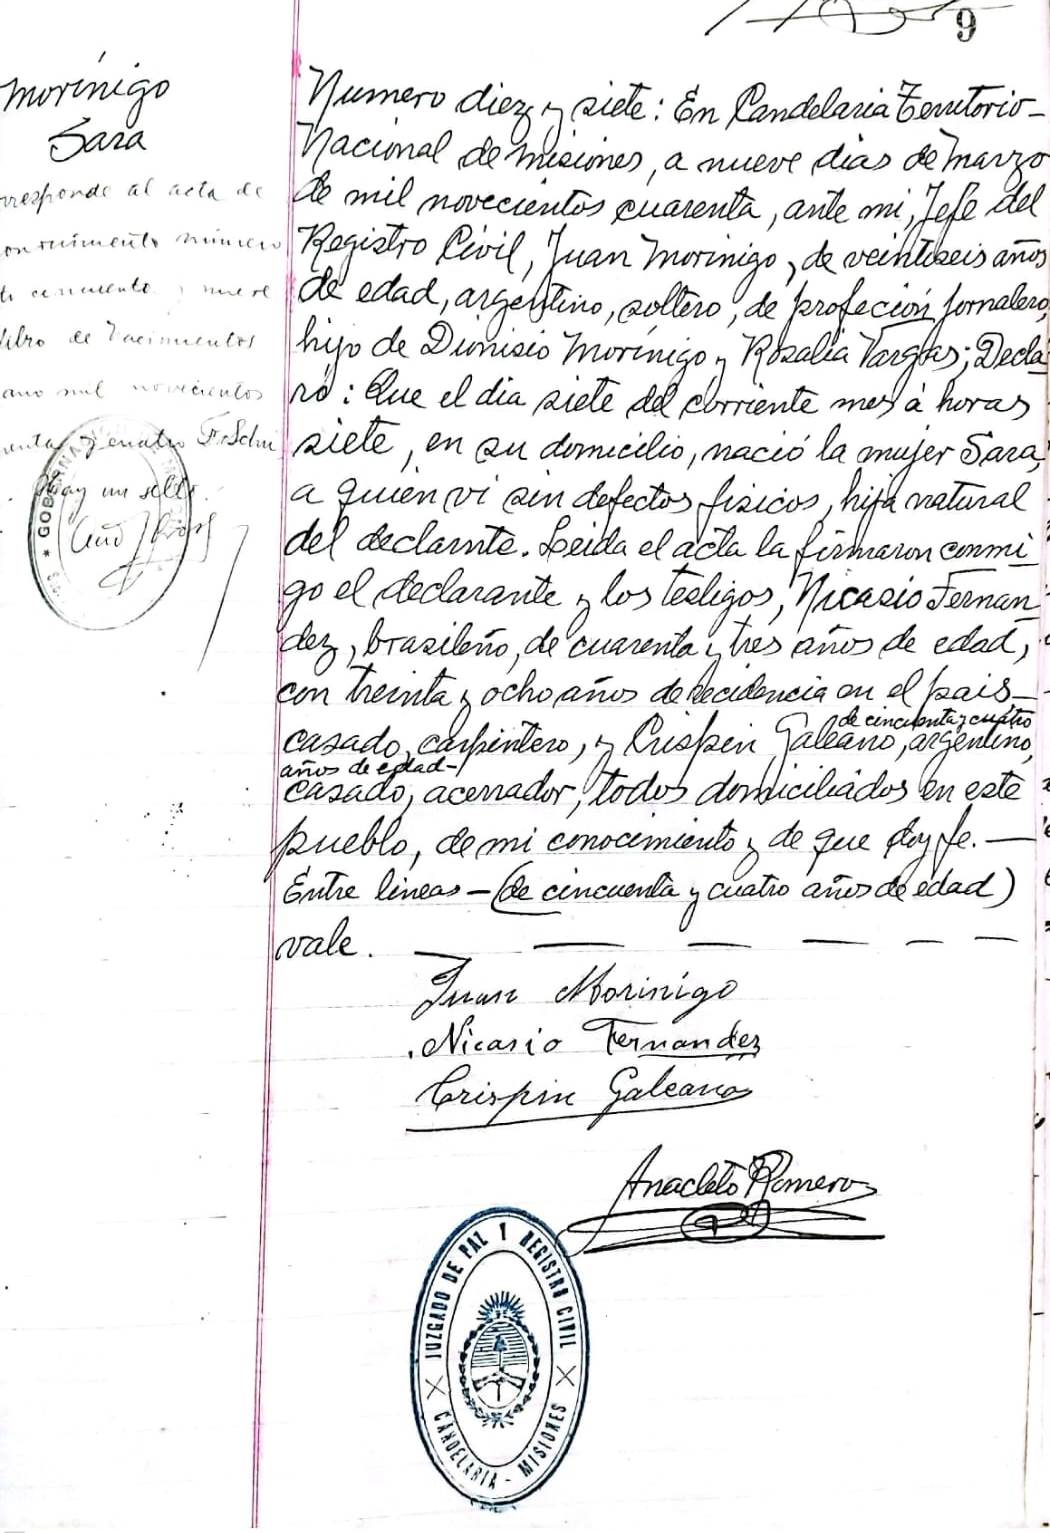 9
Morínigo
Sara
rresponde al acta de
número
cincuenta y nueve
libro de Nacimientos
ano mil novecientos
y cuatro
Hay un sello.
* GOBERNA
Numero diez y siete: En Candelaria Territorio-
Nacional de Misiones, a nueve dias de Marzo
de mil novecientos cuarenta, ante mi, Jefe del
Registro Civil, Juan Morinigo, de veintiseis años
de edad, argentino, soltero, de profeción jornalero,
hijo de Dionisio Morínigo y Rosalia Vargas; Decla
ró: Que el dia siete del corriente mes á horas
siete, en su domicilio, nació la mujer Sara,
a quien vi sin defectos fisicos, hija natural
del declarnte. Leida el acta la firmaron conmi
go el declarante y los testigos, Nicasio Fernan
dez, brasileño, de cuarenta y tres años de edad,
con treinta y ocho años de recidencia en el pais-
de cincuenta y cuatro
casado, carpintero, y Crispin Galeano, argentino,
años de edad-
casado, acerrador, todos domiciliados en este
pueblo, de mi conocimiento y de que doy fe.-
Entre lineas - (de cincuenta y cuatro años de edad)
vale.
Juan Morinigo
Nicasio Fernandez
Crispin Galeano
Anacleto Romero
JUZGADO DE PAZ Y REGISTRO CIVIL
CANDELARIA - MISIONES